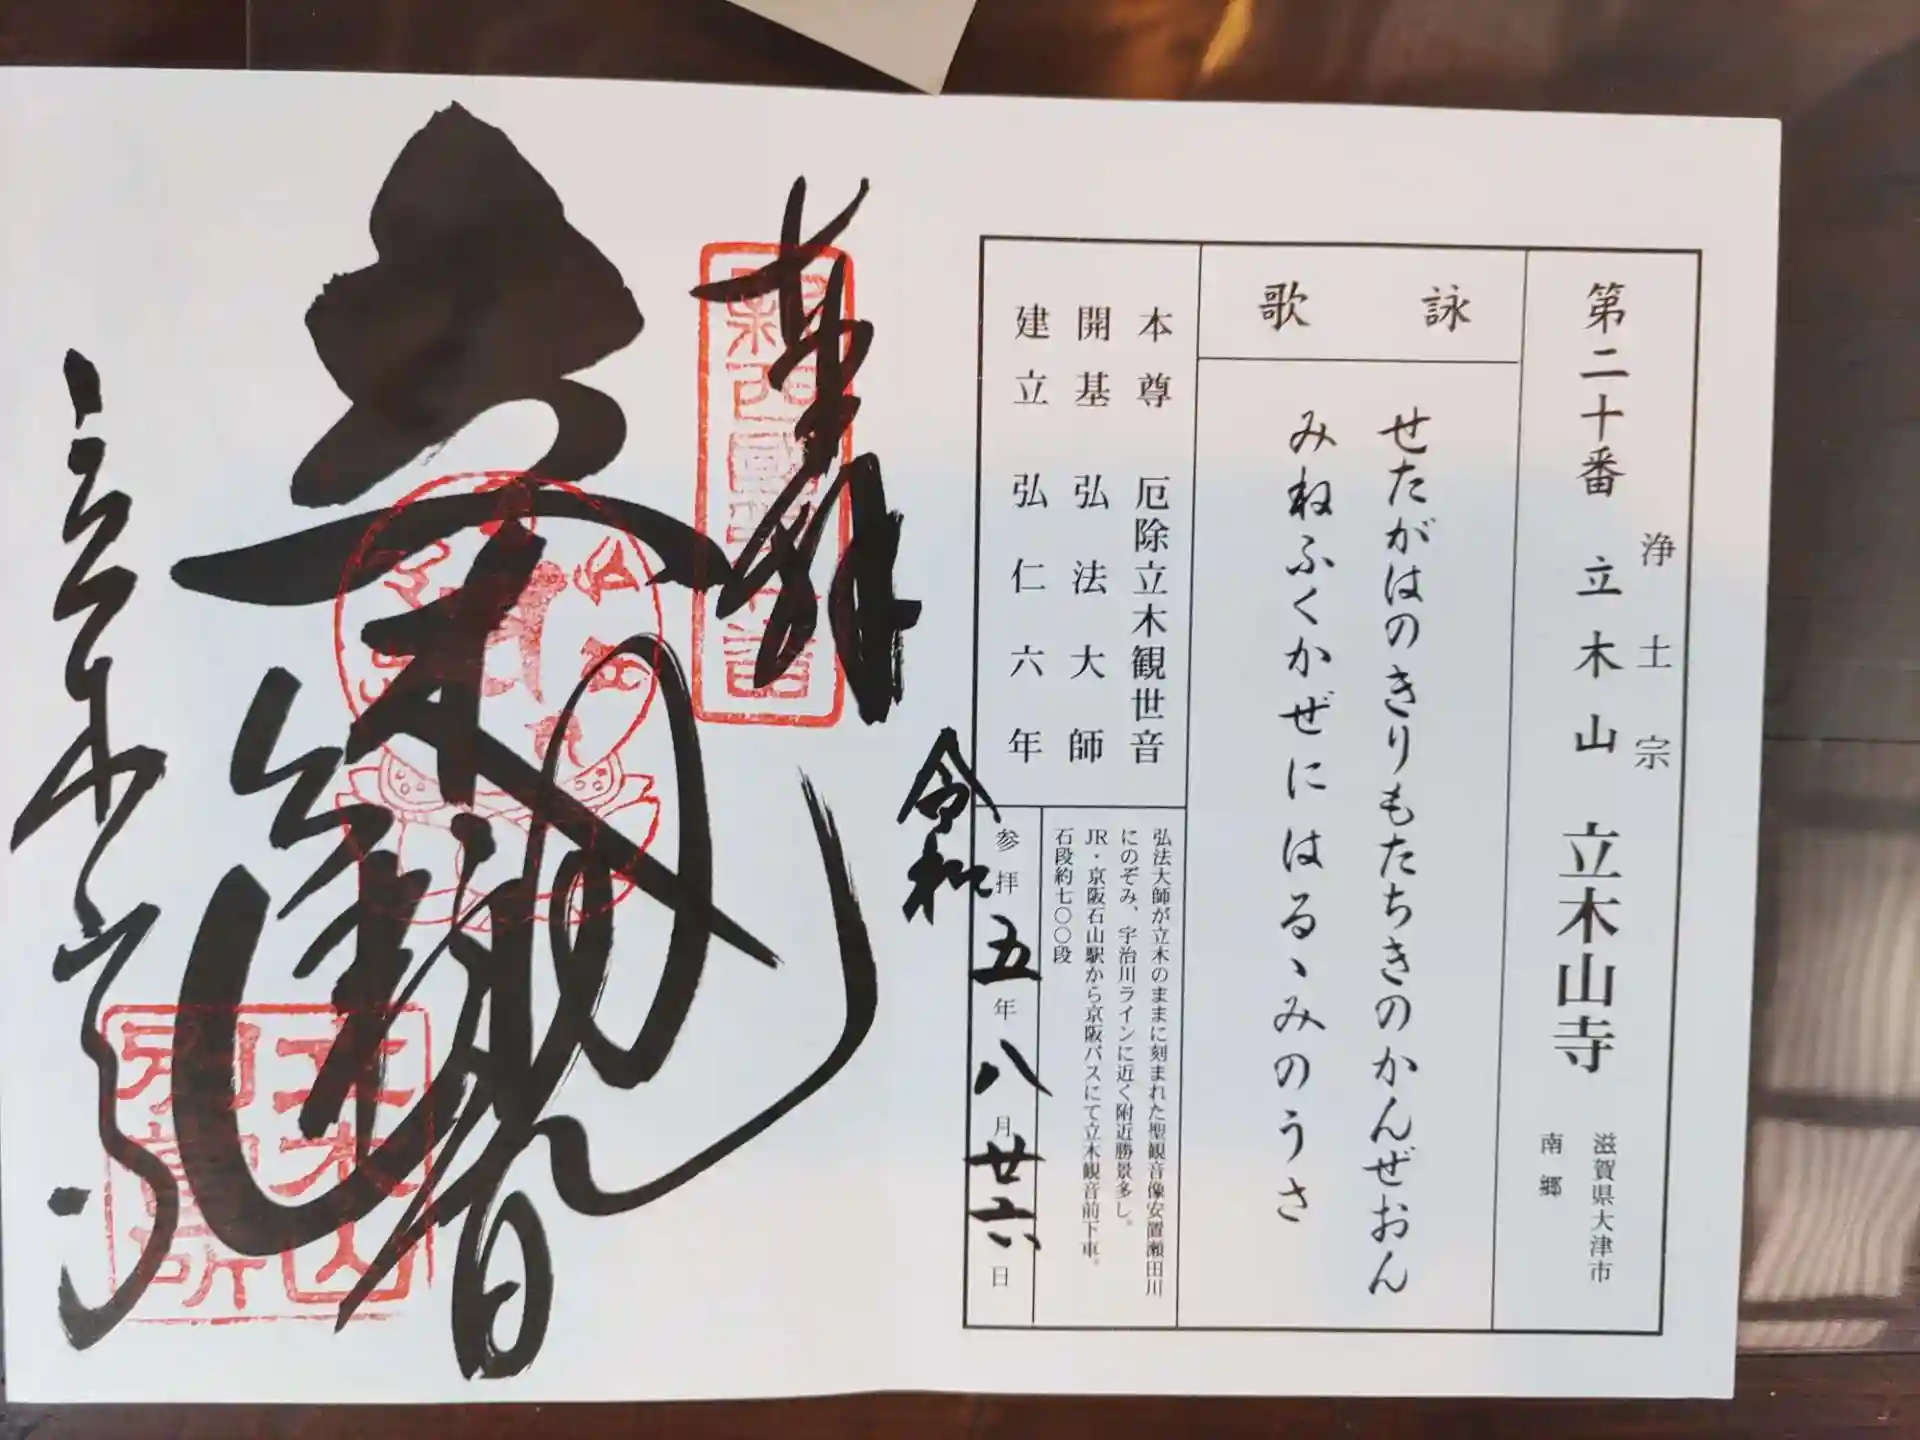 浄土宗
第二十番 立木山 立木山寺
滋賀県大津市
南郷
詠歌
せたがはのきりもたちきのかんぜおん
みねふくかぜにはるゝみのうさ
本尊 厄除立木観世音
開基 弘法大師
建立 弘仁六年
弘法大師が立木のままに刻まれた聖観音像安置瀬田川
にのぞみ、宇治川ラインに近く附近勝景多し。
JR・京阪石山駅から京阪バスにて立木観音前下車。
石段約七〇〇段
参拝 令和五年八月廿六日
奉拝
新西国第二十番
立木観音
立木山寺
立木山
納経所